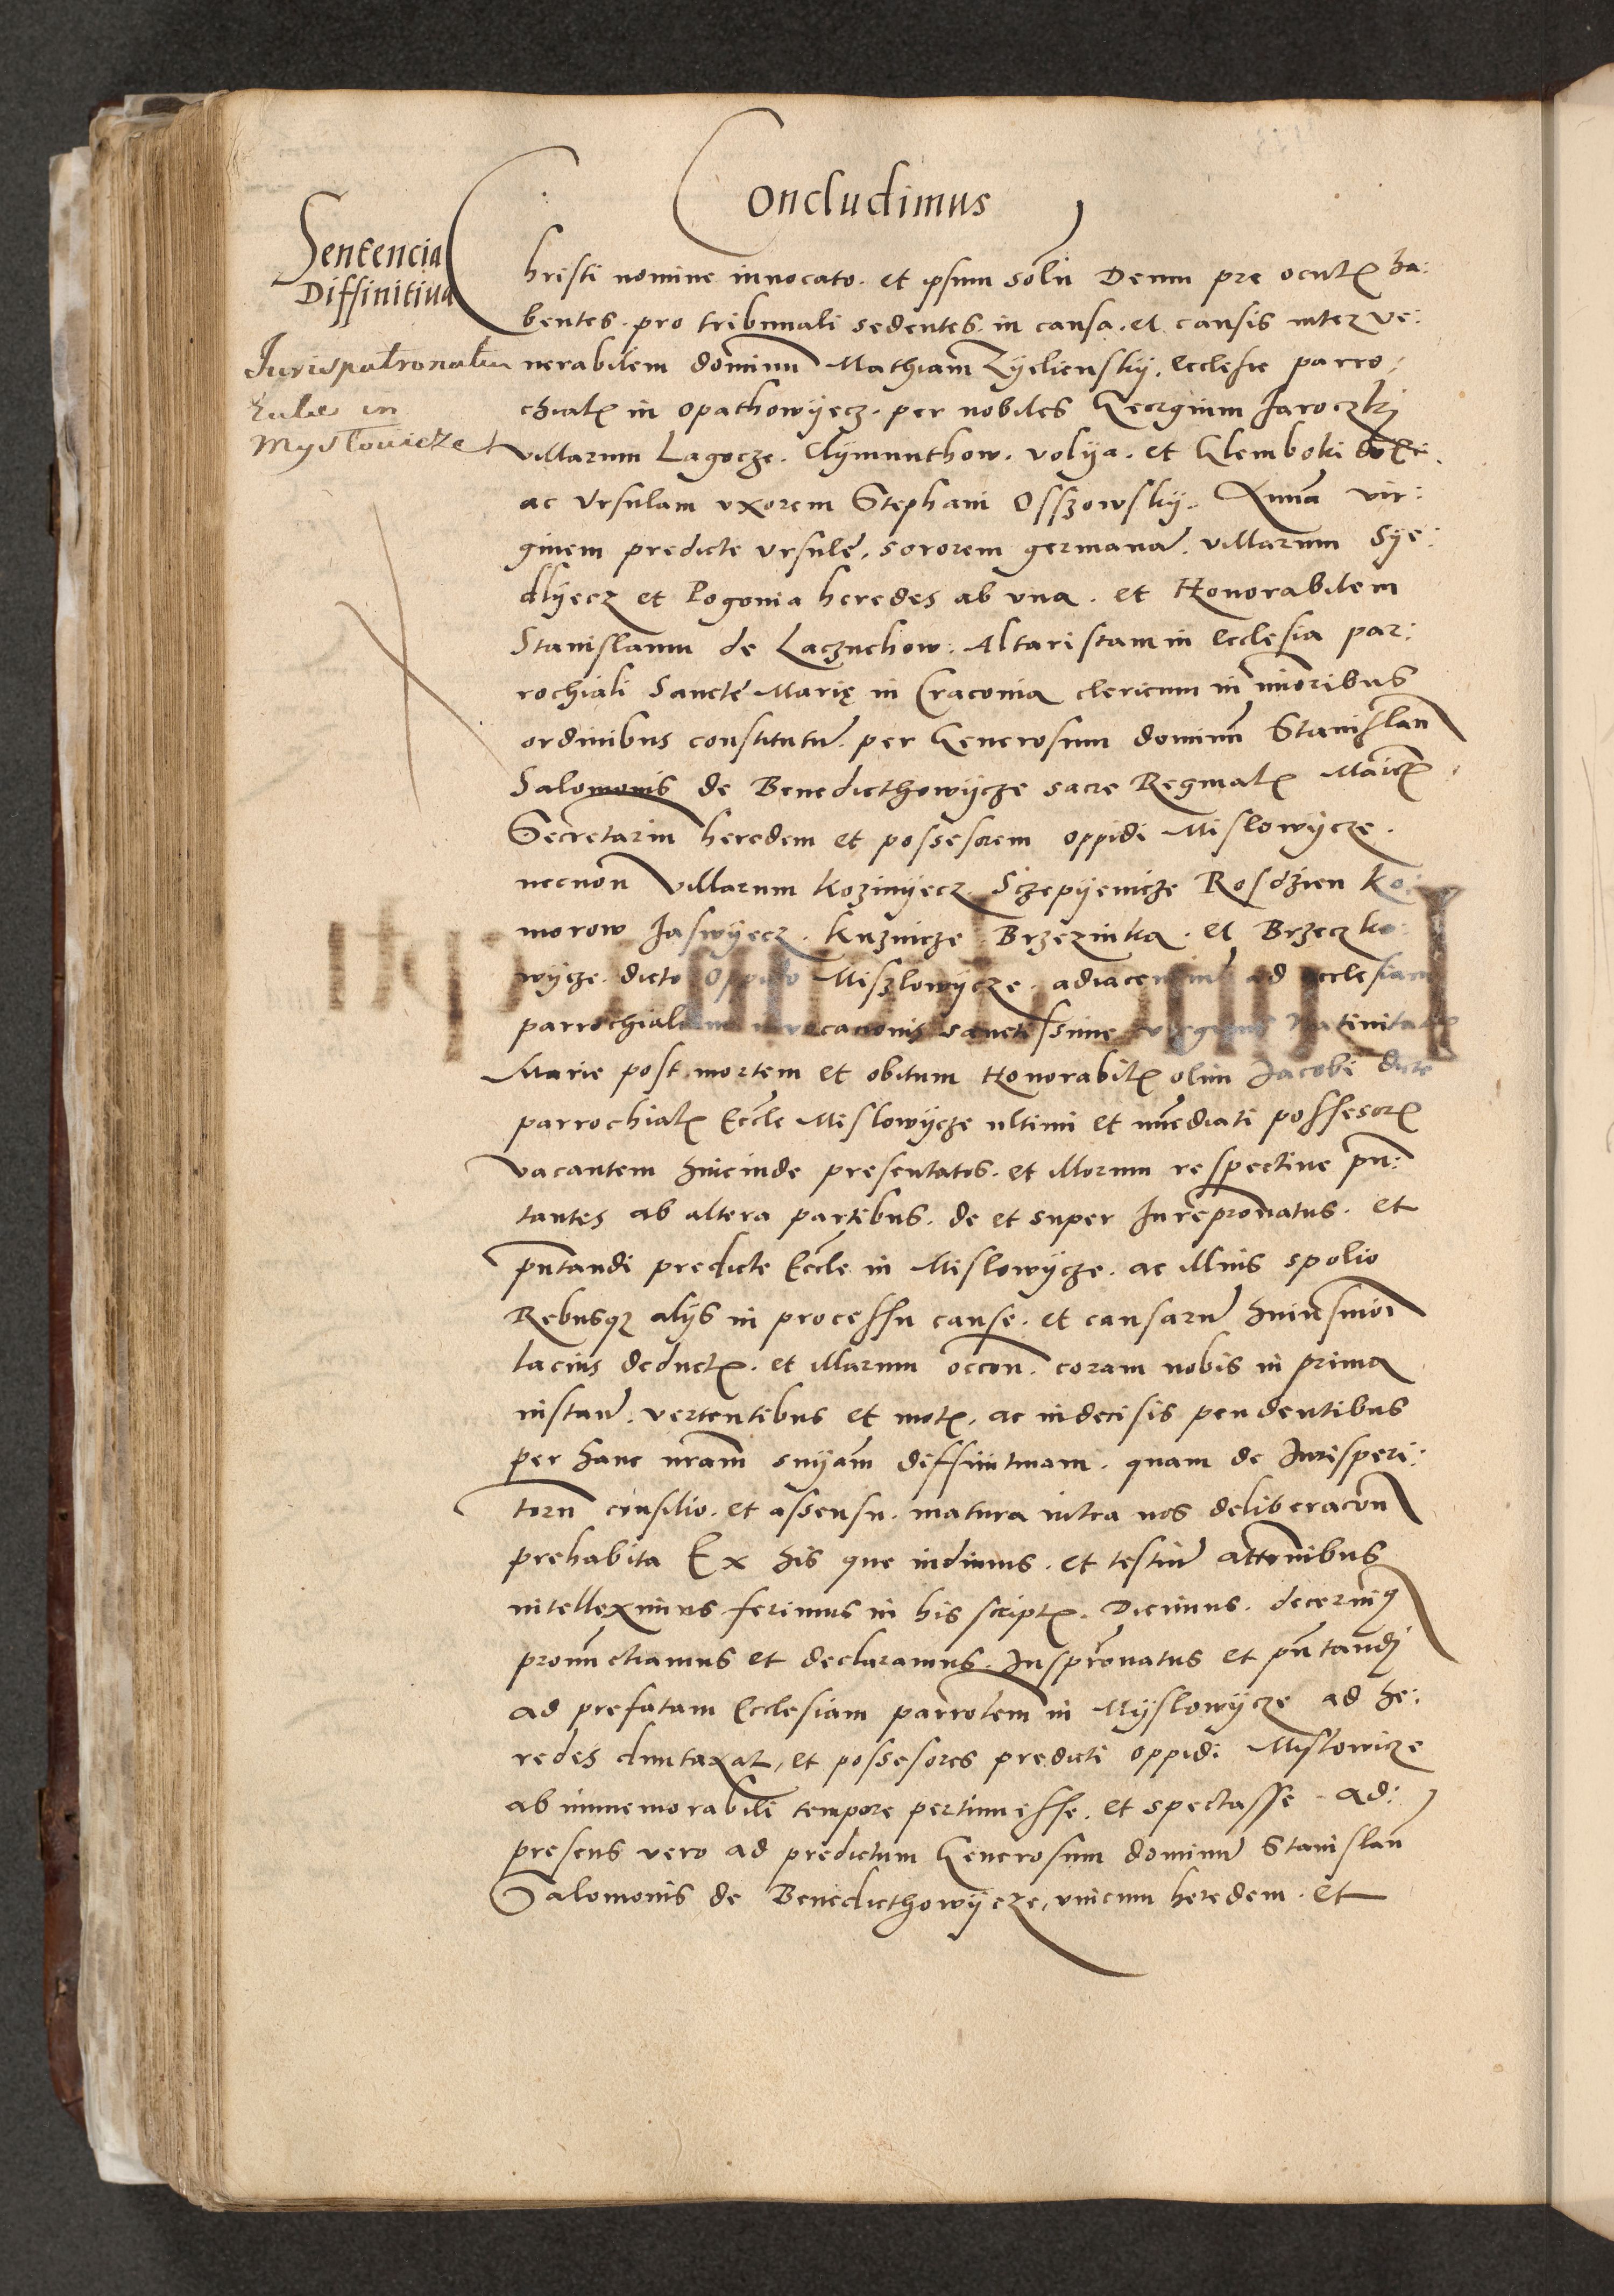 Concludimus
Sentencia
Diffinitiva
Jurispatronatus
in
Mysłowicze
Christi nomine invocato. et ipsum solū Deum pre oculis ha:
bentes. pro tribunali sedentes. in causa. et causis inter ve:
nerabilem dominū Mathiam Zyelienskÿ. Ecclesie parro:
chialis in Opathowÿecz. per nobiles Georgium Jaroczkÿ
villarum Lagocze. Clÿmunthow. Volÿa. et Glemboki
ac Ursulam uxorem Stephani Osszowskÿ. Annā vir:
ginem predicte Ursule, sororem germanā. villarum Sye:
dlÿecz et Pogonia heredes ab una. et Honorabilem
Stanislaum de Laczuchow. Altaristam in Ecclesia par:
rochiali Sancte Marię in Cracovia clericum in minoribus
ordinibus constitutū. per Generosum dominū Stanislaū
Salomonis de Benedicthowÿcze sacre Reginalis Maiestatis
Secretariū heredem et possessorem oppidi Mislowÿcze.
necnon villarum Kozinÿecz. Sczepÿenicze Rosdzien Ko:
morow Jaswÿecz. Kuznicze. Brzezinka. et Brzeczko:
wÿcze. dicto oppido Miszlowÿcze. adiacentium ad ecclesiam
parrochialem sanctissime Nativitatis
Marie post mortem et obitum Honorabilis olim Jacobi dicte
parrochialis Eccle Mislowÿcze ultimi et īmediati possessoris
vacantem hincinde presentatos. et illorum respective pn̄:
tantes ab altera partibus. de et super Jurepronatus. et
pn̄tandi predicte Eccle in Mislowÿcze. ac illius spolio
Rebusq alÿs in processu cause. et causarū huiusmōi
lacius deductis. et illarum occōn. coram nobis in prima
instan̄. vertentibus et motis. ac indecisis pendentibus
per hanc nr̄am sn̄iam diffinitivam. quam de Jurisperi:
torū consilio. et assensu. matura intra nos deliberacōn
prehabita Ex his que vidimus. et testiū attōnibus
intelleximus ferimus in his scriptis. Dicimus. decernim9
pronūctiamus et declaramus. Juspr̄onatus et pn̄tandj
ad prefatam Ecclesiam parrolem in Mÿslowÿcze ad he:
redes duntaxat, et possessores predicti oppidi Mislowicze
ab immemorabili tempore pertinuisse. et spectasse. ad:
presens vero ad predictum Generosum dominū Stanislaū
Salomonis de Benedicthowÿcze, unicum heredem. et